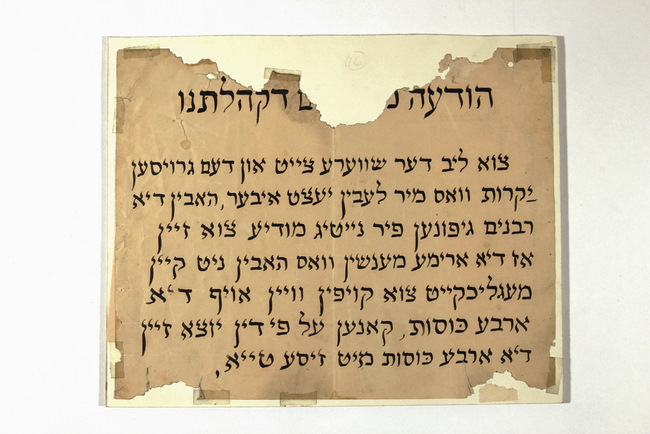 16
הודעה דקהלתנו
צוא ליב דער שווערע צייט און דעם גרויסען
יקרות וואס מיר לעבין יעצט איבער, האבין דיא
רבנים גיפונען פיר נייטיג מודיע צוא זיין
אז דיא ארימע מענשין וואס האבין ניט קיין
מעגליכקייט צוא קויפין וויין אויף דיא
ארבע כוסות, קאנען על פי דין יוצא זיין
דיא ארבע כוסות מיט זיסע טייא,